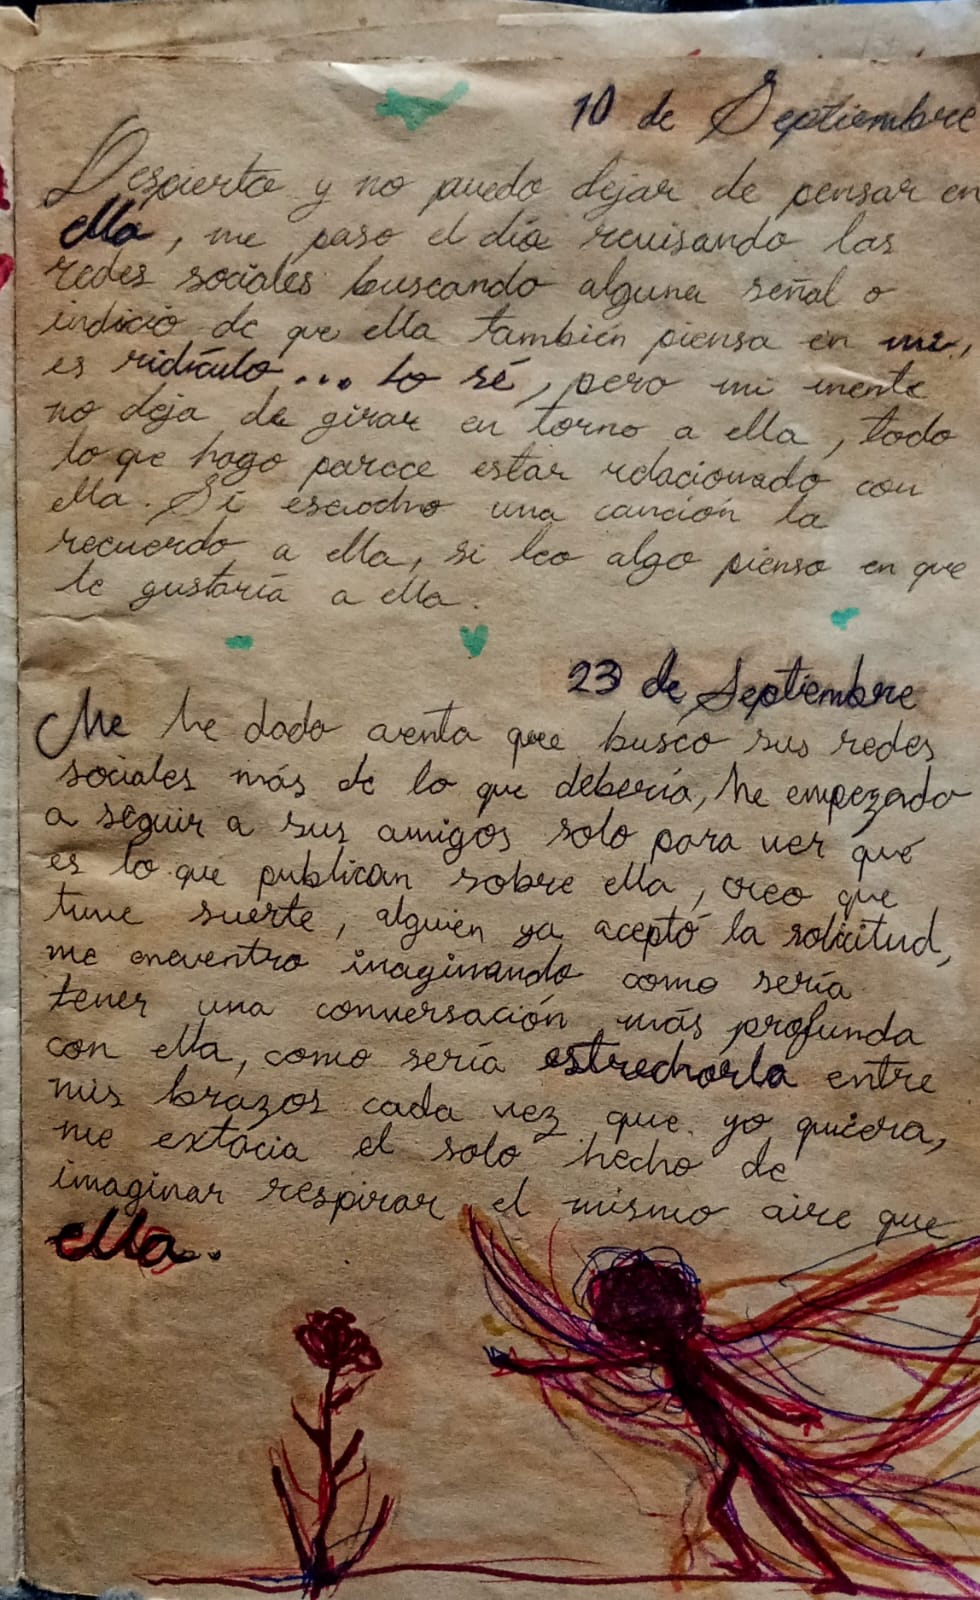 10 de Septiembre
Despierto y no puedo dejar de pensar en
ella, me paso el día revisando las
redes sociales buscando alguna señal o
indicio de que ella también piensa en mi,
es ridículo... lo sé, pero mi mente
no deja de girar en torno a ella, todo
lo que hago parece estar relacionado con
ella. Si escucho una canción la
recuerdo a ella, si leo algo pienso en que
le gustaría a ella.
23 de Septiembre
Me he dado cuenta que busco sus redes
sociales más de lo que debería, he empezado
a seguir a sus amigos solo para ver qué
es lo que publican sobre ella, creo que
tuve suerte, alguien ya aceptó la solicitud,
me encuentro imaginando como sería
tener una conversación más profunda
con ella, como sería estrecharla entre
mis brazos cada vez que yo quiera,
me extacia el solo hecho de
imaginar respirar el mismo aire que
ella..